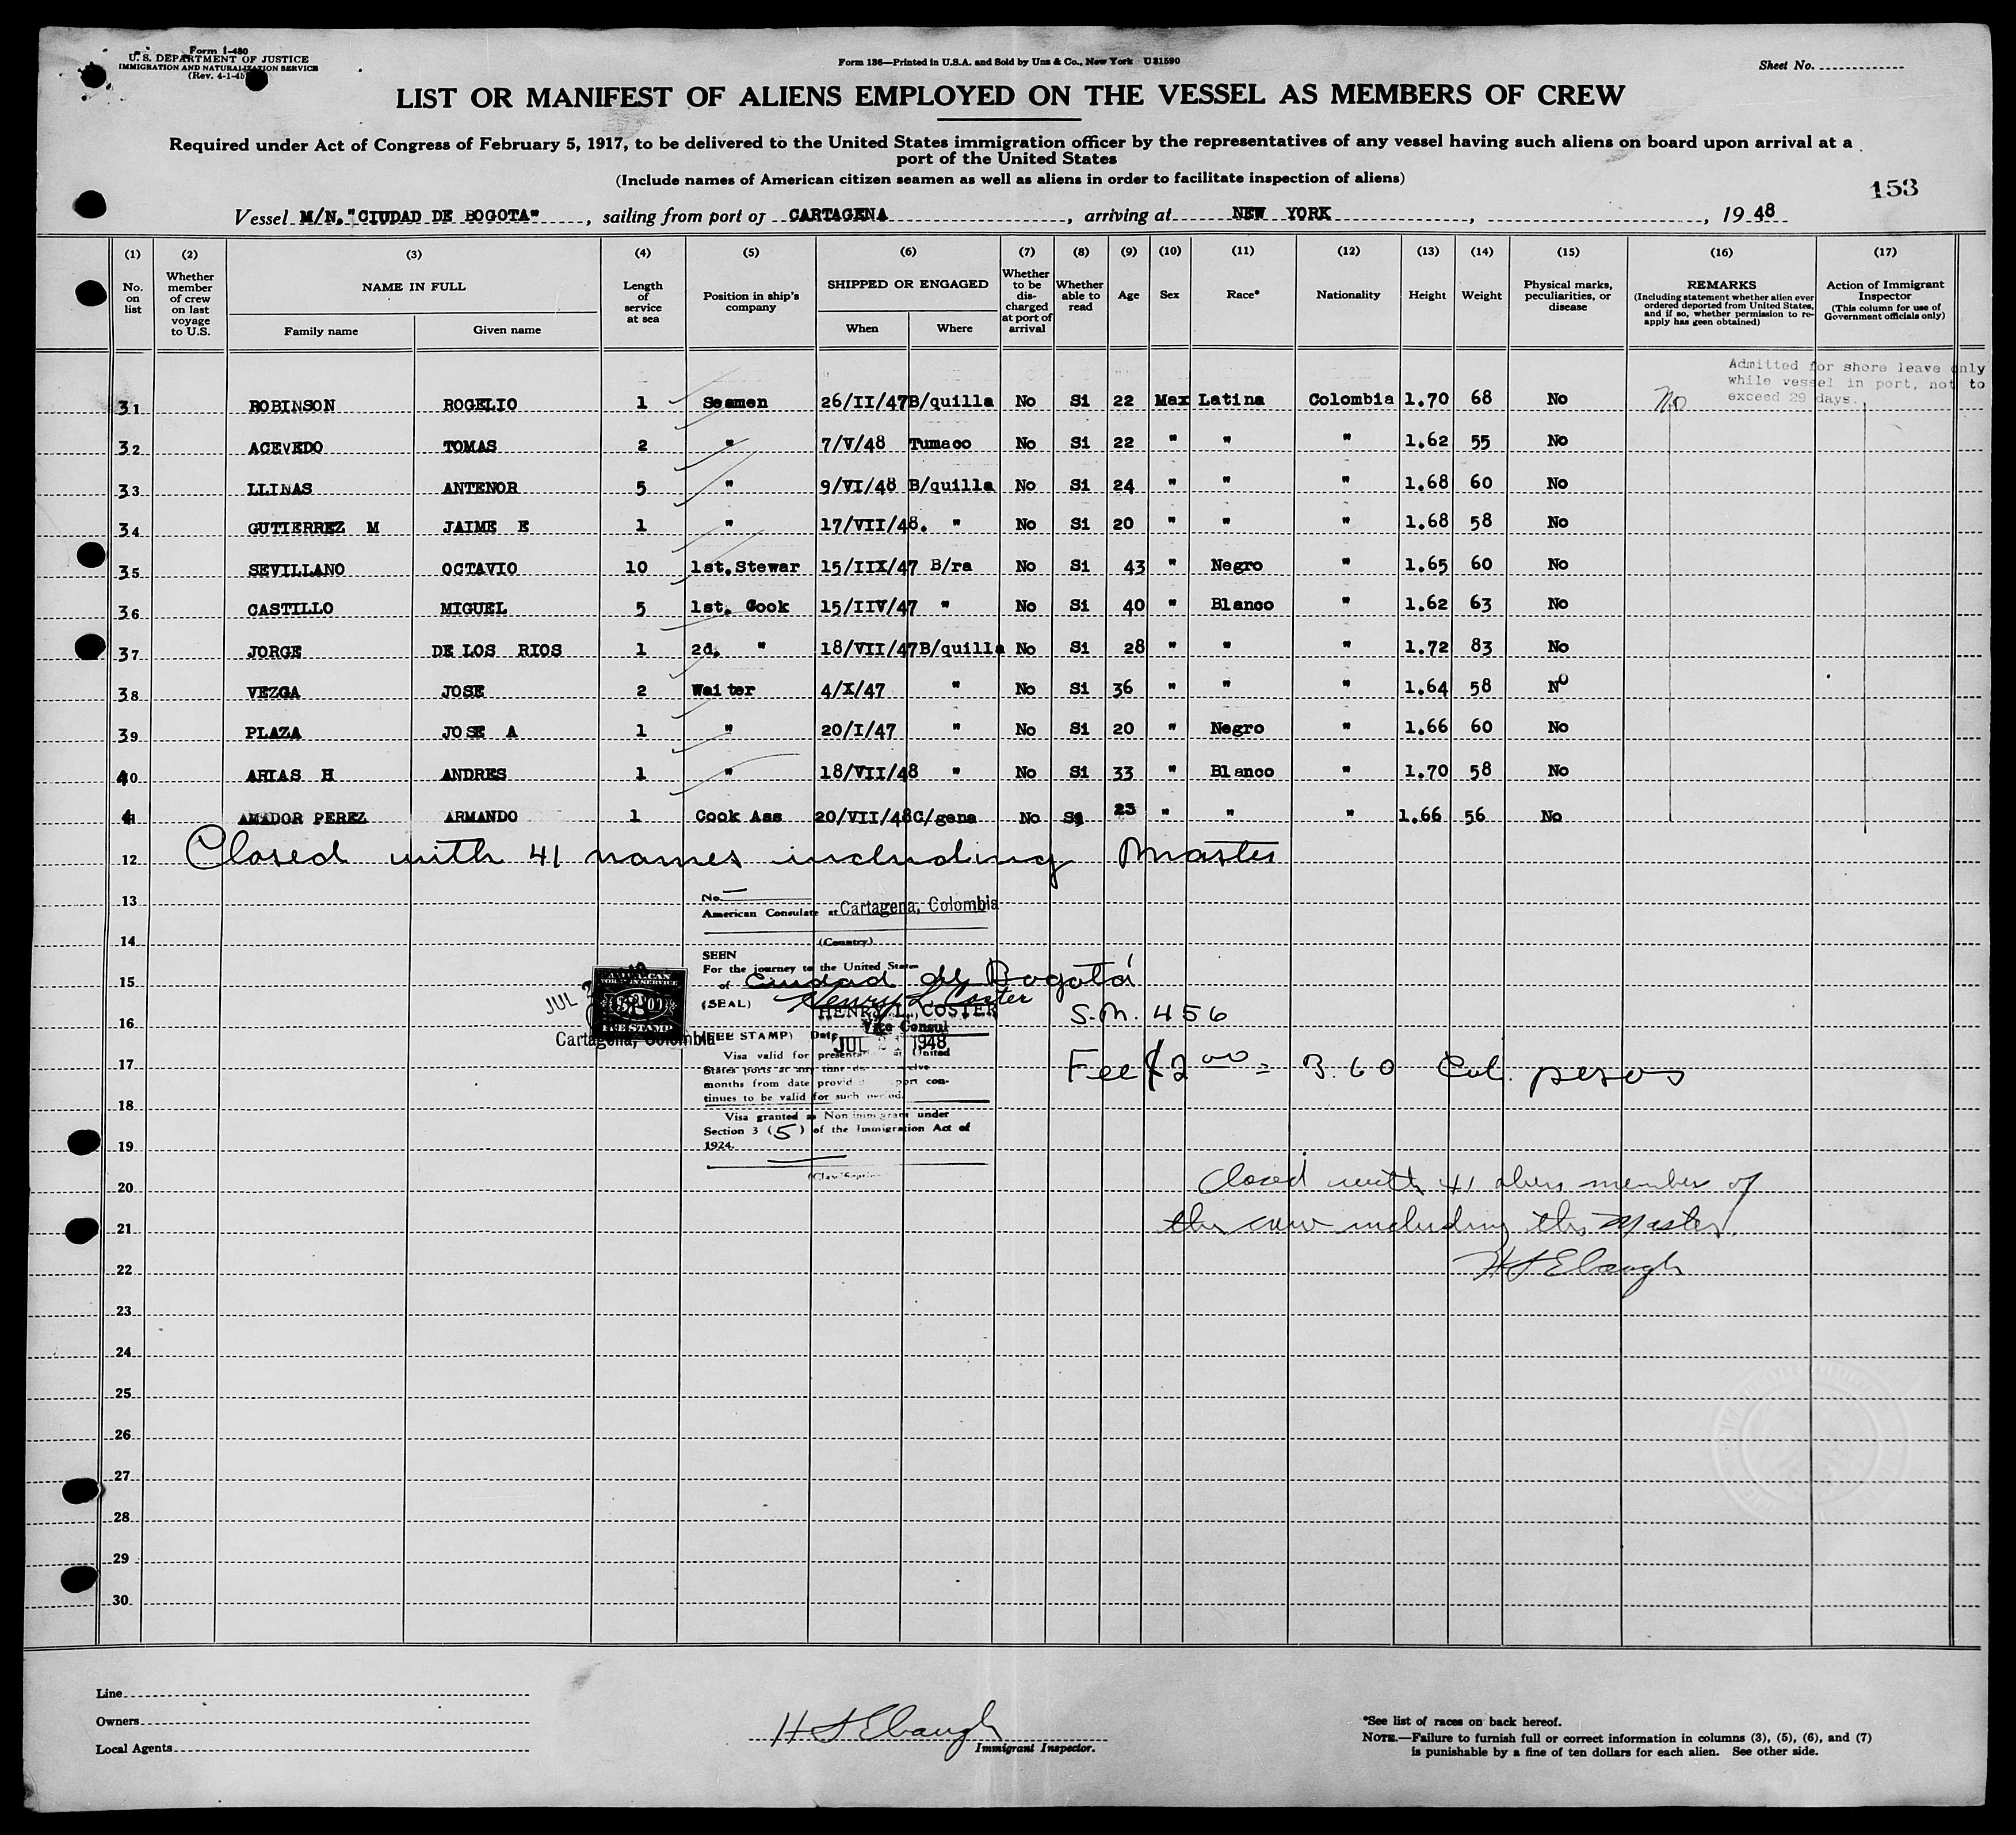 Form I-480
U. S. DEPARTMENT OF JUSTICE
IMMIGRATION AND NATURALIZATION SERVICE
(Rev. 4-1-45)
Form 136—Printed in U.S.A. and Sold by Unz & Co., New York U 31590
Sheet No.
LIST OR MANIFEST OF ALIENS EMPLOYED ON THE VESSEL AS MEMBERS OF CREW
Required under Act of Congress of February 5, 1917, to be delivered to the United States immigration officer by the representatives of any vessel having such aliens on board upon arrival at a
port of the United States
(Include names of American citizen seamen as well as aliens in order to facilitate inspection of aliens)
153
Vessel M/N. "CIUDAD DE BOGOTA", sailing from port of CARTAGENA, arriving at NEW YORK, , 19 48
(1) (2) (3) (4) (5) (6) (7) (8) (9) (10) (11) (12) (13) (14) (15) (16) (17)
No. on list
Whether member of crew on last voyage to U.S.
NAME IN FULL
Family name Given name
Length of service at sea
Position in ship's company
SHIPPED OR ENGAGED
When Where
Whether to be discharged at port of arrival
Whether able to read
Age
Sex
Race*
Nationality
Height
Weight
Physical marks, peculiarities, or disease
REMARKS
(Including statement whether alien ever ordered deported from United States, and if so, whether permission to re-apply has geen obtained)
Action of Immigrant Inspector
(This column for use of Government officials only)
Admitted for shore leave only
while vessel in port, not to
exceed 29 days.
31 ROBINSON ROGELIO 1 Seamen 26/II/47 B/quilla No Si 22 Max Latina Colombia 1.70 68 No No
32 ACEVEDO TOMAS 2 " 7/V/48 Tumaco No Si 22 " " " 1.62 55 No
33 LLINAS ANTENOR 5 " 9/VI/48 B/quilla No Si 24 " " " 1.68 60 No
34 GUTIERREZ M JAIME E 1 " 17/VII/48. " No Si 20 " " " 1.68 58 No
35 SEVILLANO OCTAVIO 10 1st.Stewar 15/IIX/47 B/ra No Si 43 " Negro " 1.65 60 No
36 CASTILLO MIGUEL 5 1st. Cook 15/IIV/47 " No Si 40 " Blanco " 1.62 63 No
37 JORGE DE LOS RIOS 1 2d. " 18/VII/47 B/quilla No Si 28 " " " 1.72 83 No
38 VEZGA JOSE 2 Waiter 4/X/47 " No Si 36 " " " 1.64 58 No
39 PLAZA JOSE A 1 " 20/I/47 " No Si 20 " Negro " 1.66 60 No
40 ARIAS H ANDRES 1 " 18/VII/48 " No Si 33 " Blanco " 1.70 58 No
41 AMADOR PEREZ ARMANDO 1 Cook Ass 20/VII/48 C/gena No Si 23 " " " 1.66 56 No
12 Closed with 41 names including Master
13
No.
American Consulate at Cartagena, Colombia
14
(Country)
SEEN
For the journey to the United States
15
of Ciudad de Bogotá
(SEAL) Henry L. Coster
HENRY L. COSTER
S.N. 456
16
Vice Consul
JUL 2
FEE STAMP
Cartagena, Colombia
(FEE STAMP) Date JUL 21 1948
17
Visa valid for presentation at United
States ports at any time during twelve
months from date provided passport con-
tinues to be valid for such period.
Fee $2 00 = 3.60 Col. pesos
18
Visa granted as Non immigrant under
Section 3 (5) of the Immigration Act of
1924.
19
20 Closed with 41 aliens member of
21 the crew including the Master.
22 H S Ebaugh
23
24
25
26
27
28
29
30
Line
Owners
Local Agents
H S Ebaugh
Immigrant Inspector.
*See list of races on back hereof.
NOTE.—Failure to furnish full or correct information in columns (3), (5), (6), and (7)
is punishable by a fine of ten dollars for each alien. See other side.